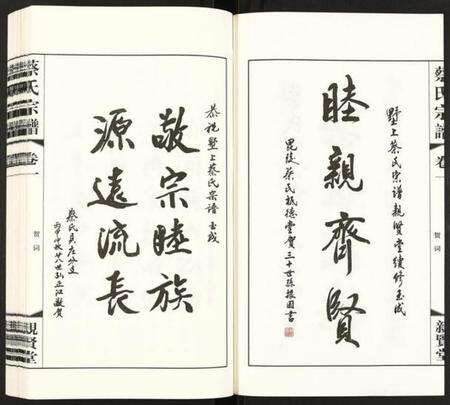 蔡氏宗譜
卷一
賀詞
親賢堂
墅上蔡氏宗譜親賢堂續修告成
睦親齊賢
毘陵蔡氏栻德堂賀三十世孫振國書
恭祝墅上蔡氏宗譜告成
敬宗睦族
源遠流長
蔡氏
廿八世孫正江敬賀
蔡氏宗譜
卷一
賀詞
親賢堂